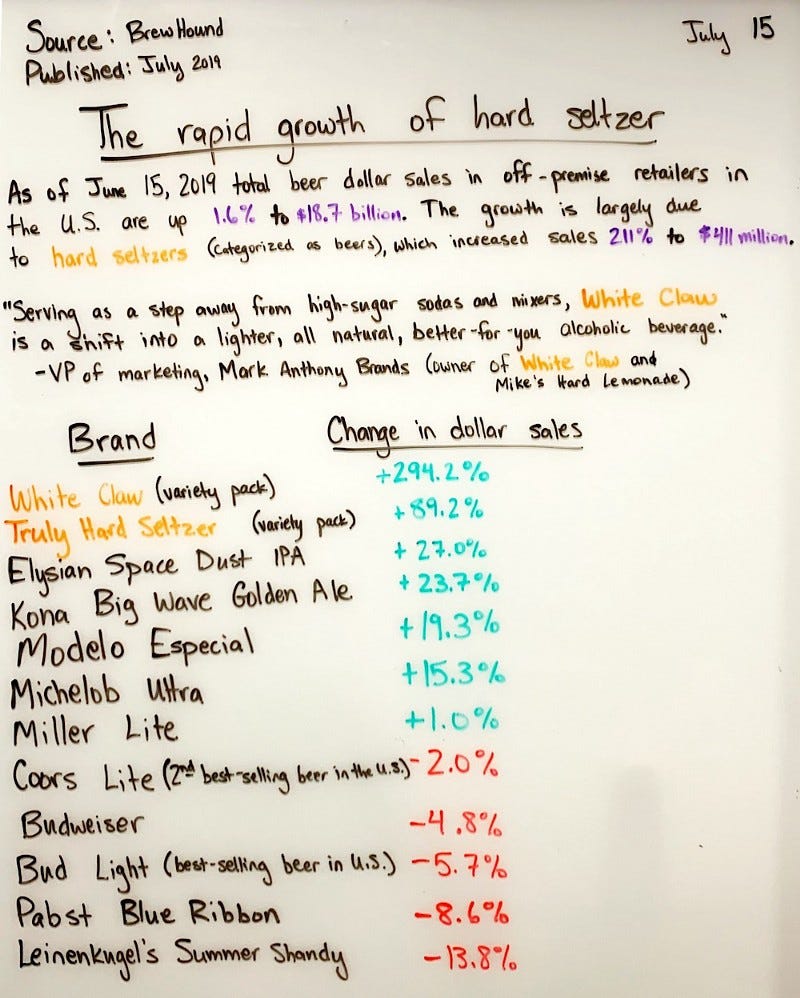 Source: BrewHound
July 15
Published: July 2019
The rapid growth of hard seltzer
As of June 15, 2019 total beer dollar sales in off-premise retailers in
the U.S. are up 1.6% to $18.7 billion. The growth is largely due
to hard seltzers (categorized as beers), which increased sales 211% to $411 million.
"Serving as a step away from high-sugar sodas and mixers, White Claw
is a shift into a lighter, all natural, better-for-you alcoholic beverage."
-VP of marketing, Mark Anthony Brands (owner of White Claw and
Mike's Hard Lemonade)
Brand Change in dollar sales
White Claw (variety pack) +294.2%
Truly Hard Seltzer (variety pack) +89.2%
Elysian Space Dust IPA +27.0%
Kona Big Wave Golden Ale +23.7%
Modelo Especial +19.3%
Michelob Ultra +15.3%
Miller Lite +1.0%
Coors Lite (2nd best-selling beer in the U.S.) -2.0%
Budweiser -4.8%
Bud Light (best-selling beer in U.S.) -5.7%
Pabst Blue Ribbon -8.6%
Leinenkugel's Summer Shandy -13.8%